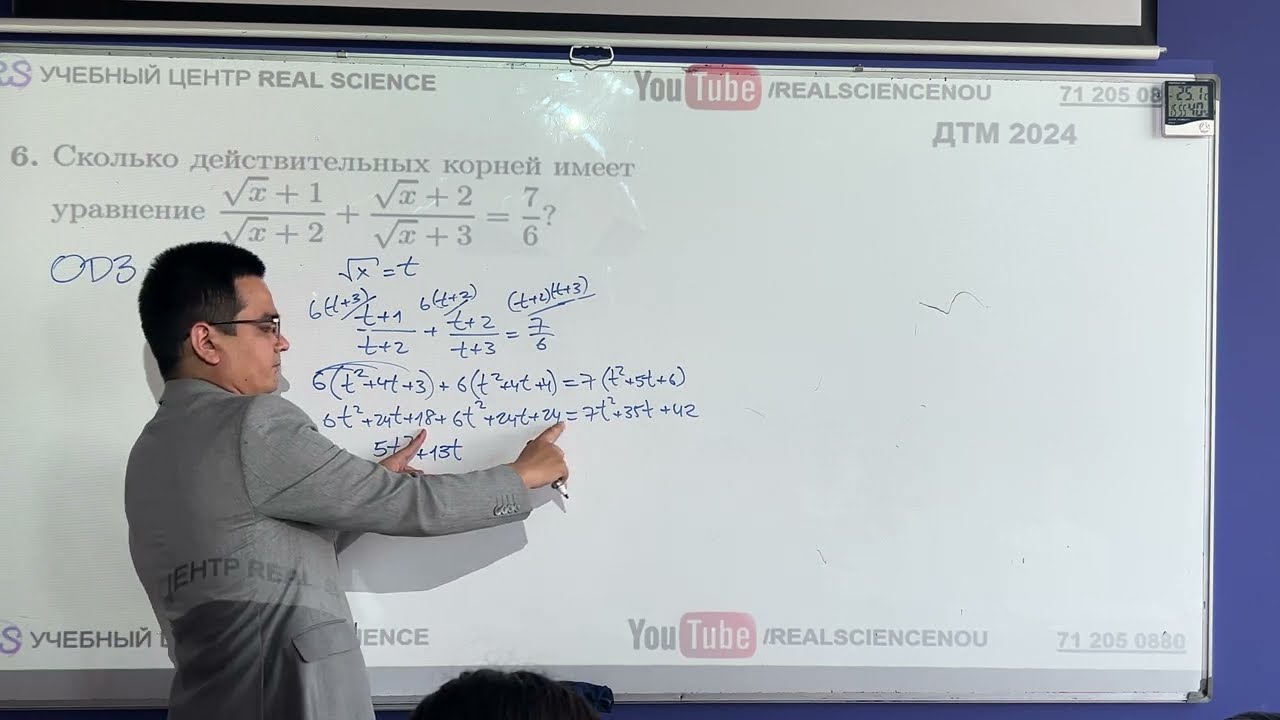 RS УЧЕБНЫЙ ЦЕНТР REAL SCIENCE
YouTube /REALSCIENCENOU
71 205 08
25.1
ДТМ 2024
6. Сколько действительных корней имеет
уравнение (√x + 1)/(√x + 2) + (√x + 2)/(√x + 3) = 7/6?
ОДЗ
√x = t
6(t+3) 6(t+2) (t+2)(t+3)
(t+1)/(t+2) + (t+2)/(t+3) = 7/6
6(t²+4t+3) + 6(t²+4t+4) = 7(t²+5t+6)
6t²+24t+18+6t²+24t+24=7t²+35t+42
5t²+13t
ЦЕНТР REAL
S УЧЕБНЫЙ IENCE
YouTube /REALSCIENCENOU
71 205 0880